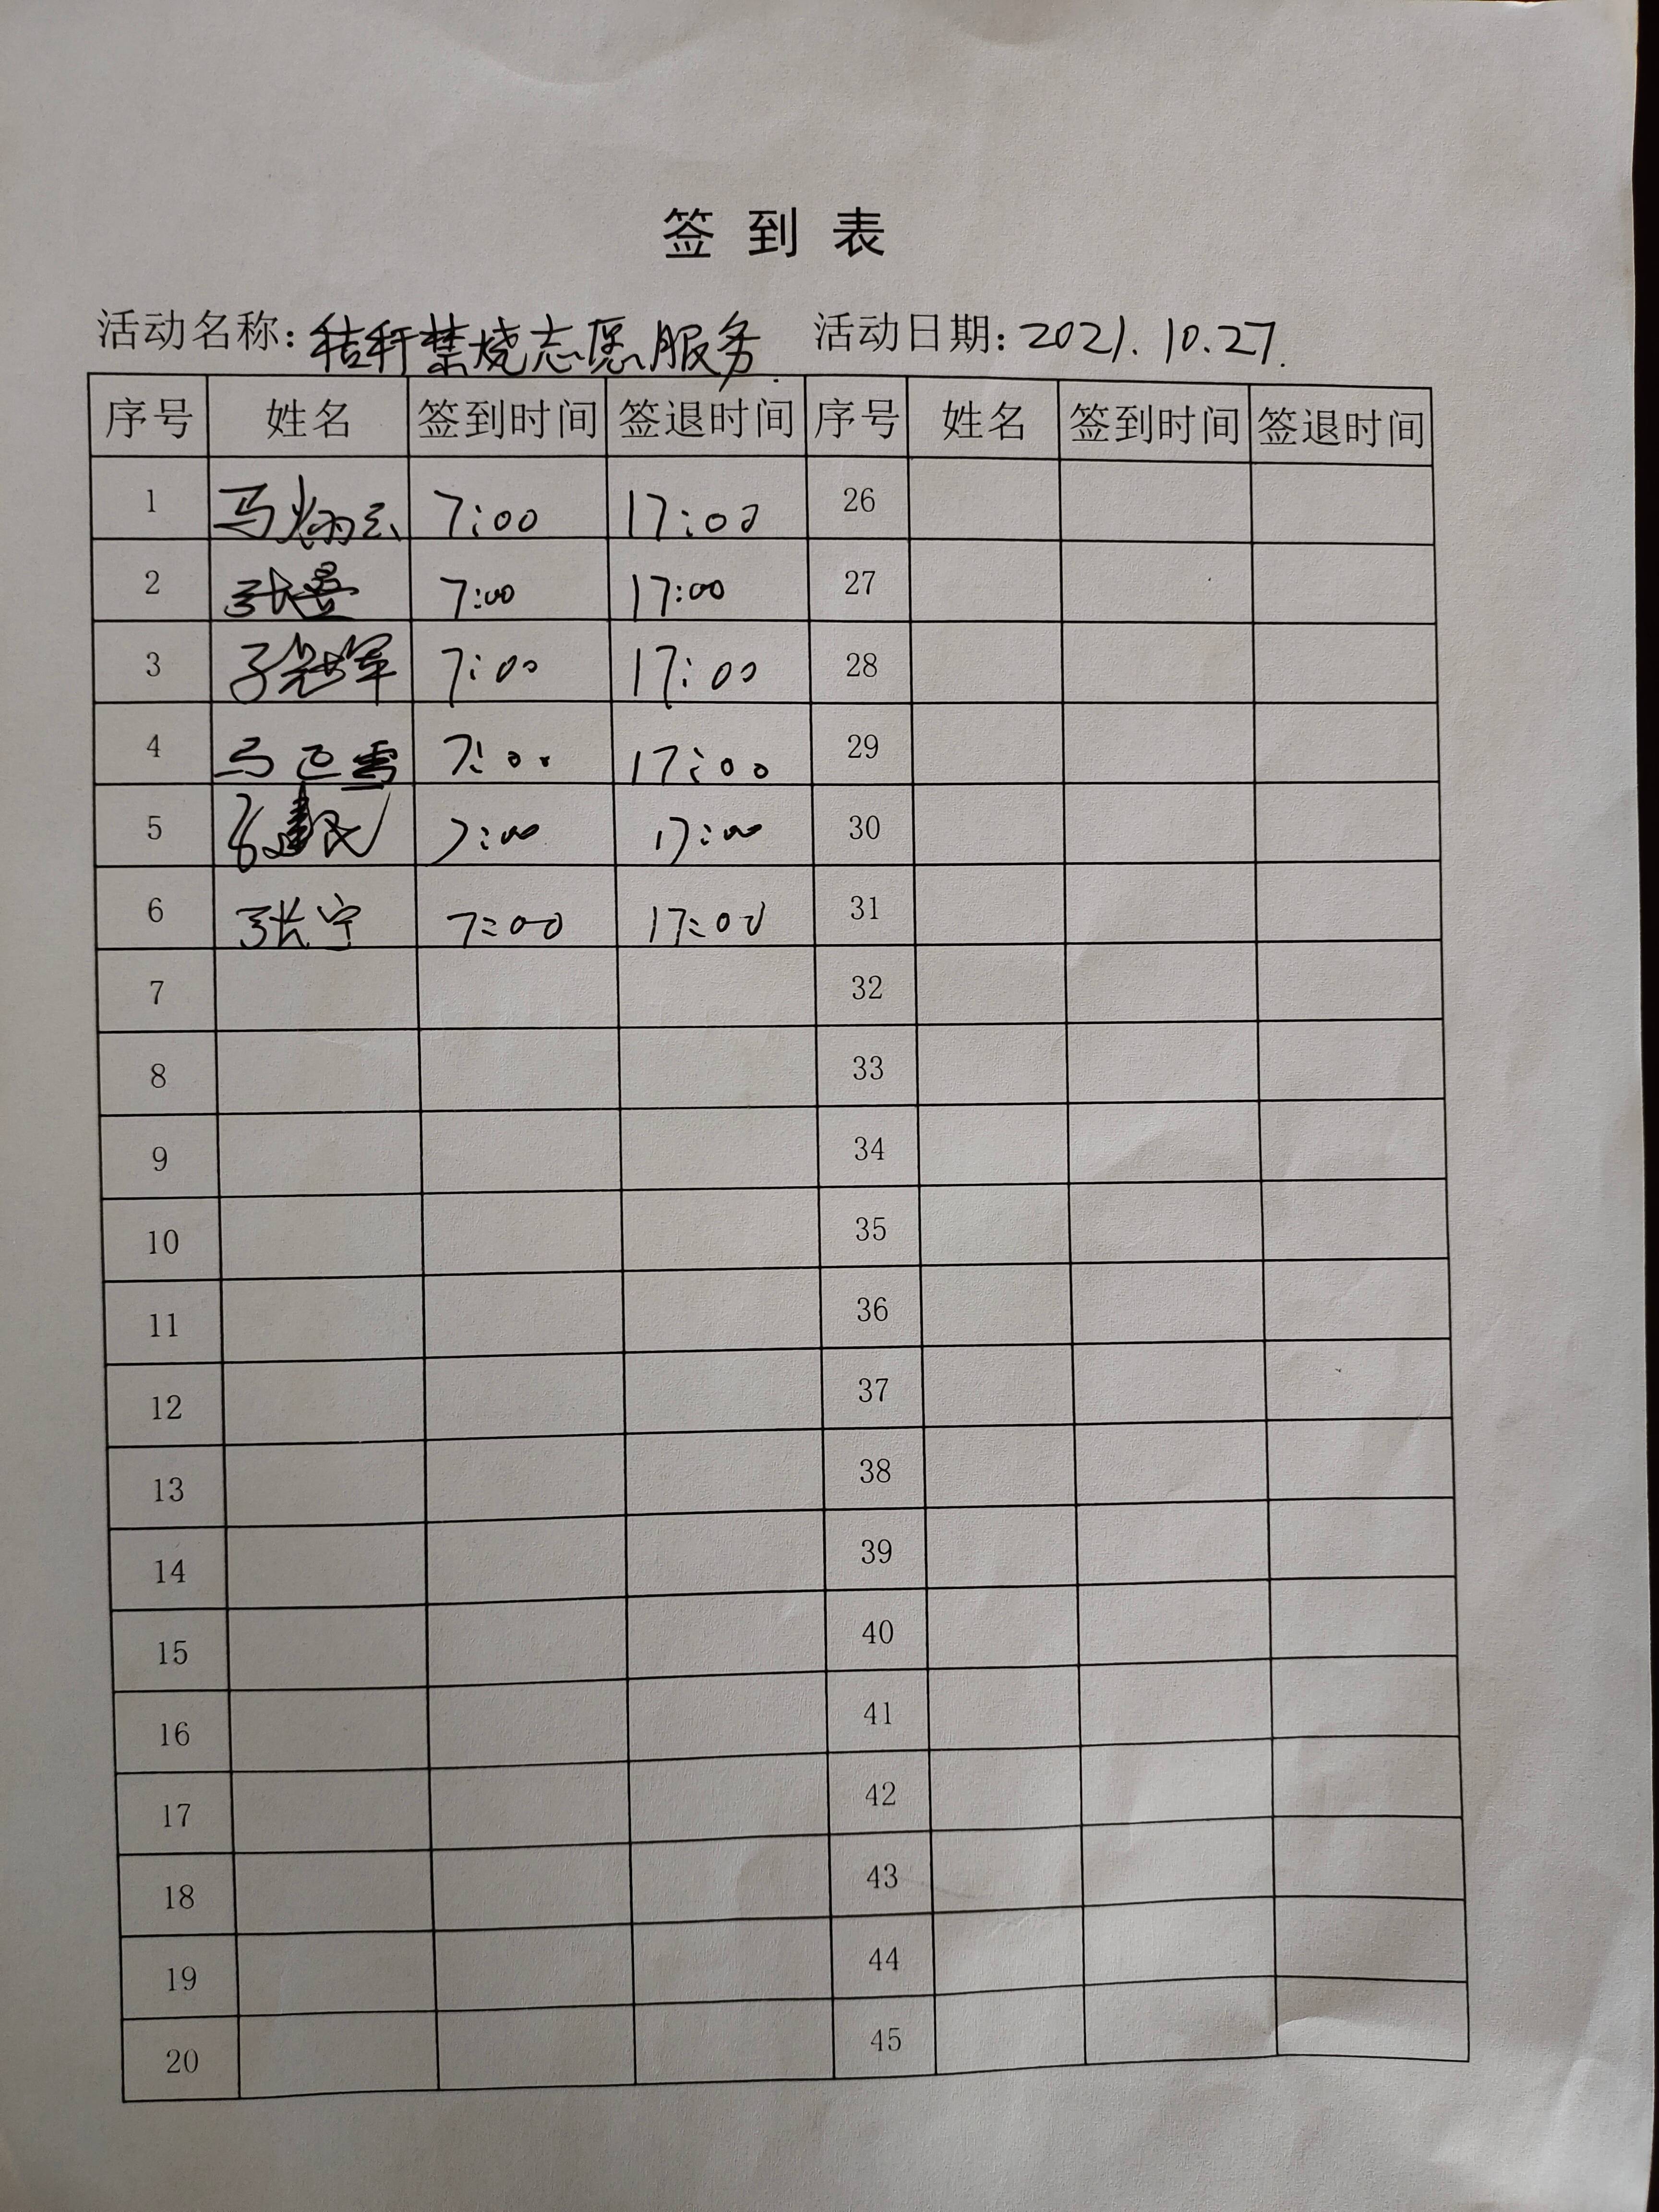 签到表
活动名称：秸秆禁烧志愿服务. 活动日期：2021.10.27.
序号 姓名 签到时间 签退时间 序号 姓名 签到时间 签退时间
1 马 7:00 17:00 26
2 张 7:00 17:00 27
3 7:00 17:00 28
4 马 7:00 17:00 29
5 7:00 17:00 30
6 张宁 7:00 17:00 31
7 32
8 33
9 34
10 35
11 36
12 37
13 38
14 39
15 40
16 41
17 42
18 43
19 44
20 45